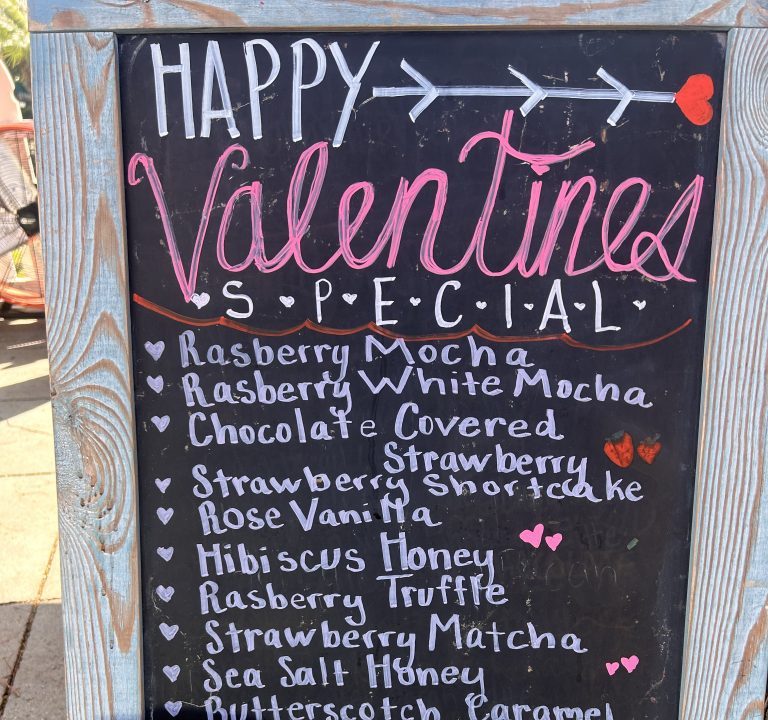 HAPPY
Valentines
SPECIAL
Rasberry Mocha
Rasberry White Mocha
Chocolate Covered
Strawberry
Strawberry Shortcake
Rose Vanilla
Hibiscus Honey
Rasberry Truffle
Strawberry Matcha
Sea Salt Honey
Butterscotch Caramel